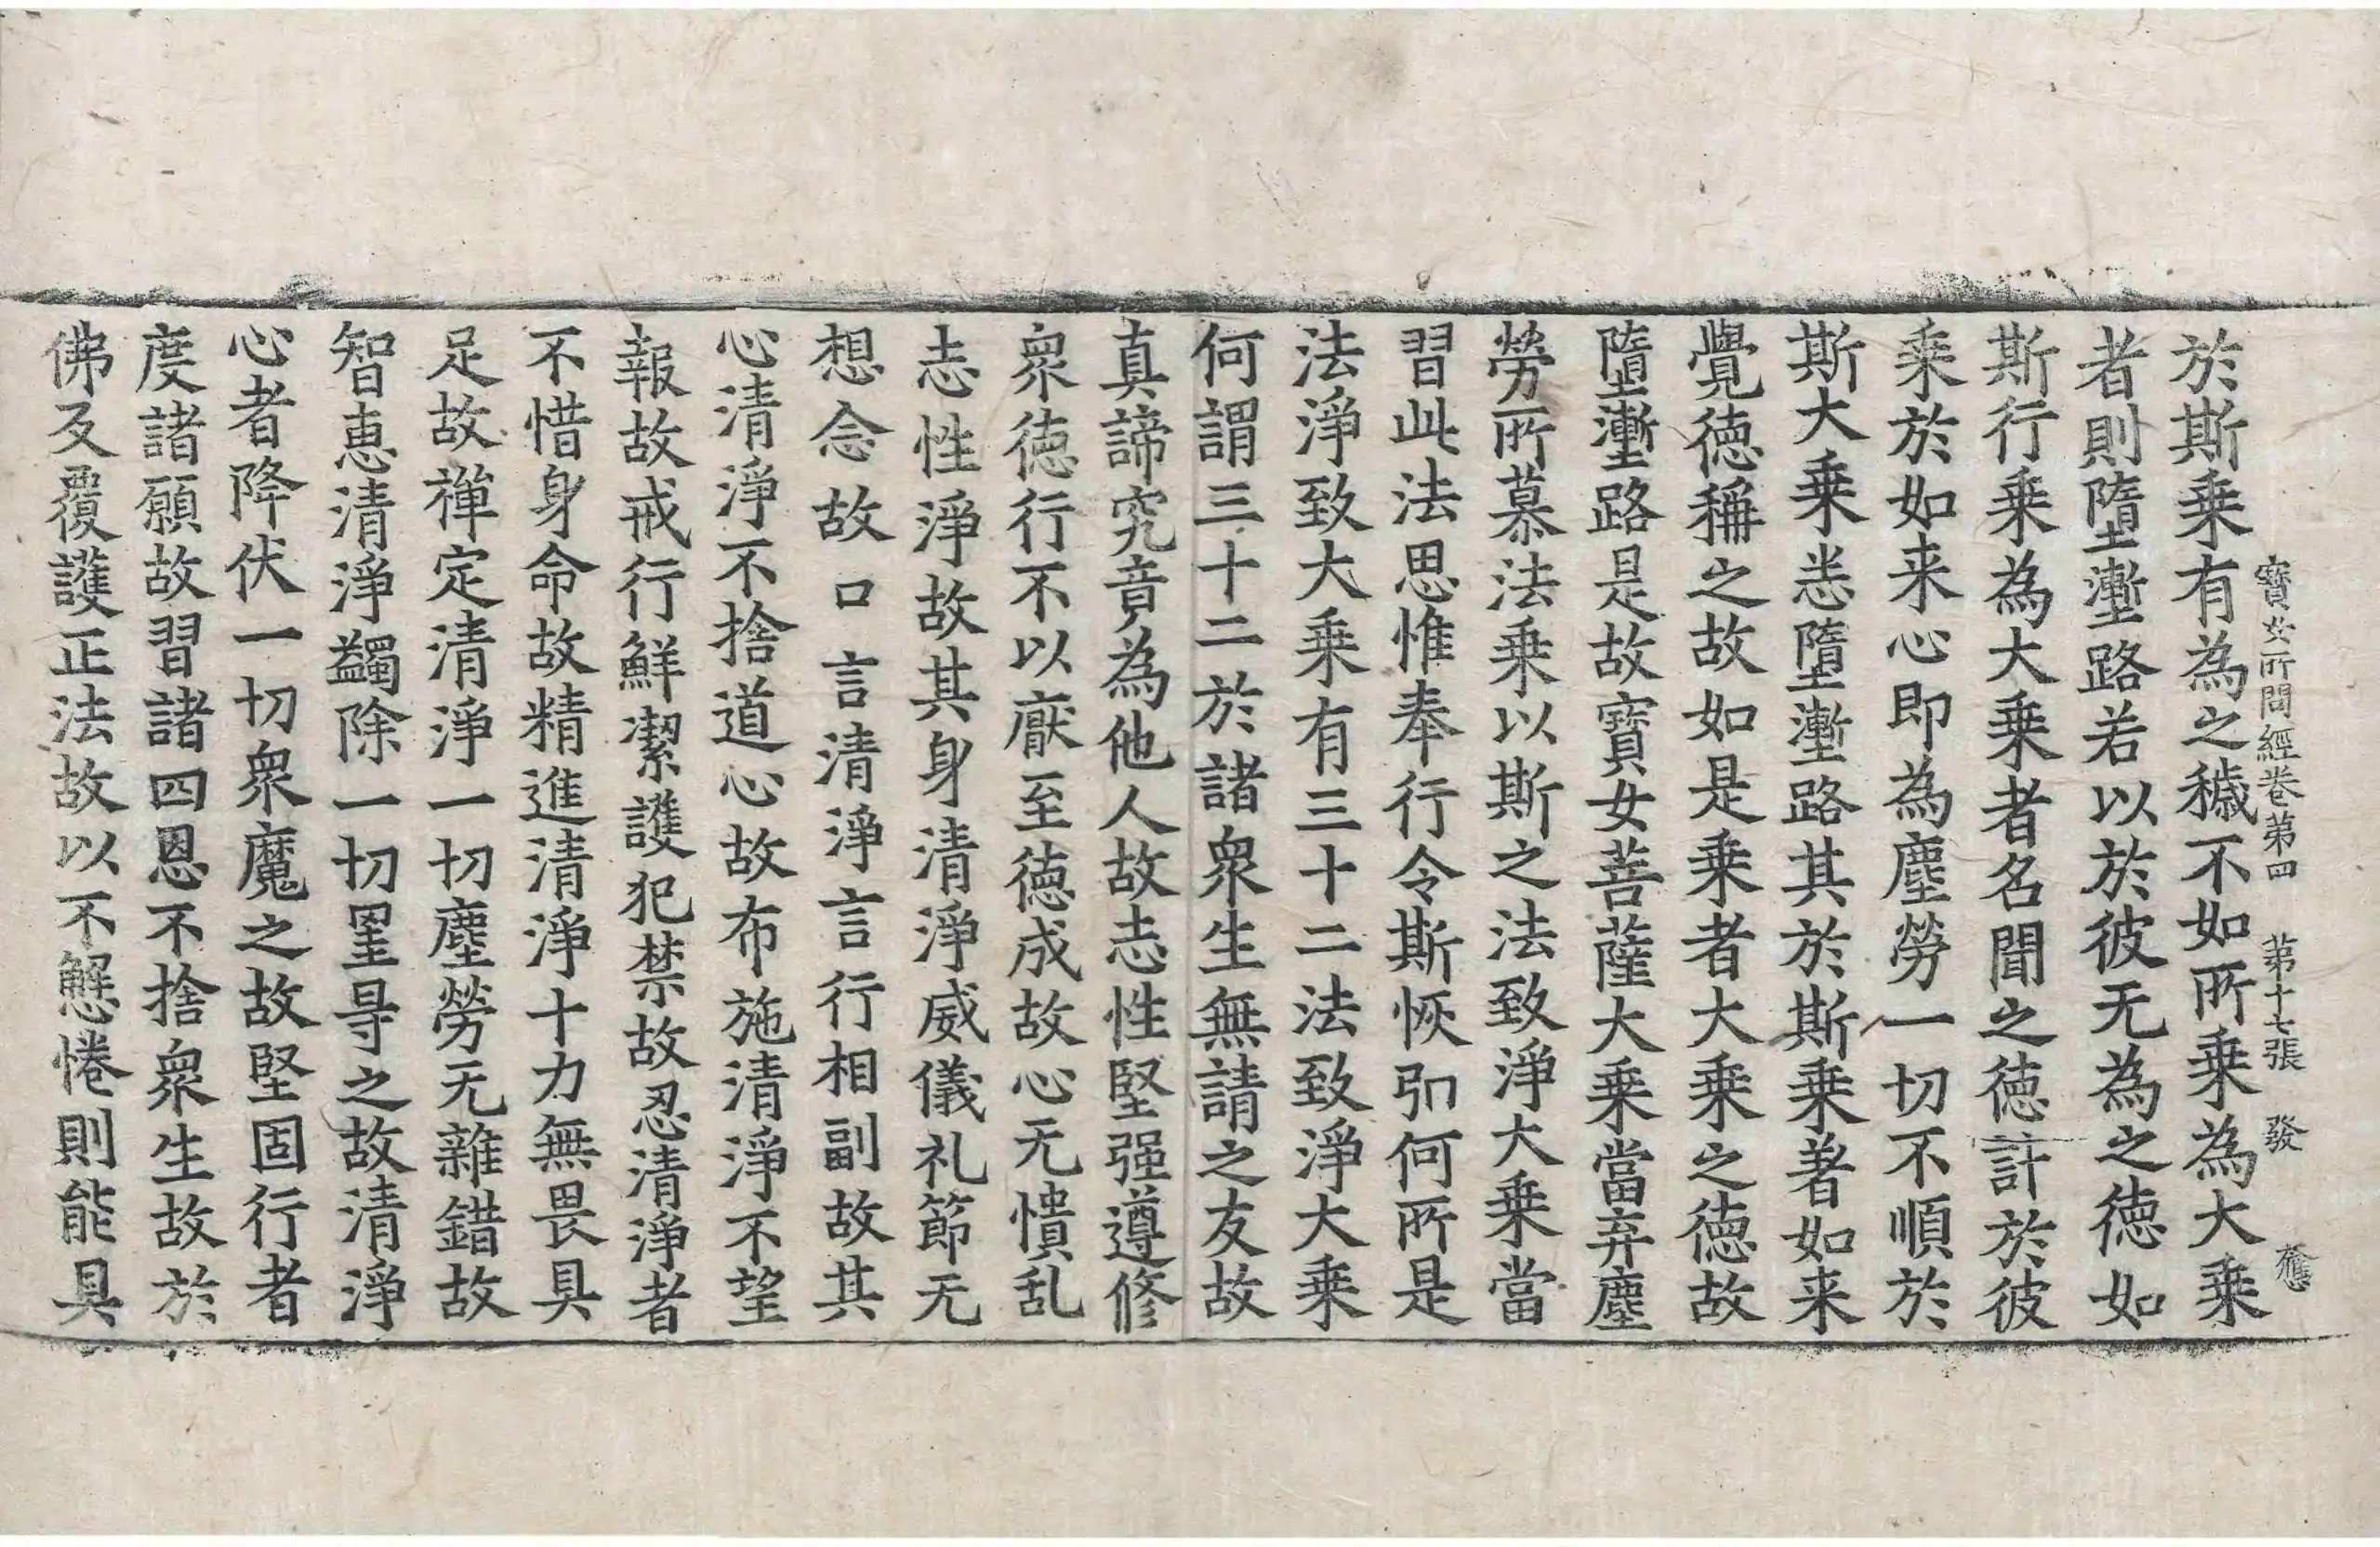 寶女所問經卷第四 第十七張 發 應
於斯乗有為之穢不如所乗為大乗
者則墮壍路若以於彼无為之德如
斯行乗為大乗者名聞之德計於彼
乗於如来心即為塵勞一切不順於
斯大乗恙墮壍路其於斯乗著如来
覺德稱之故如是乗者大乗之德故
墮壍路是故寶女菩薩大乗當弃塵
勞所慕法乗以斯之法致淨大乗當
習此法思惟奉行令斯恢弘何所是
法淨致大乗有三十二法致淨大乗
何謂三十二於諸衆生無請之友故
真諦究竟為他人故志性堅强遵修
衆德行不以厭至德成故心无憒乱
志性淨故其身清淨威儀礼節无
想念故口言清淨言行相副故其
心清淨不捨道心故布施清淨不望
報故戒行鮮潔護犯禁故忍清淨者
不惜身命故精進清淨十力無畏具
足故禅定清淨一切塵勞无雜錯故
智恵清淨蠲除一切罣㝵之故清淨
心者降伏一切衆魔之故堅固行者
度諸願故習諸四恩不捨衆生故於
佛反覆護正法故以不懈惓則能具